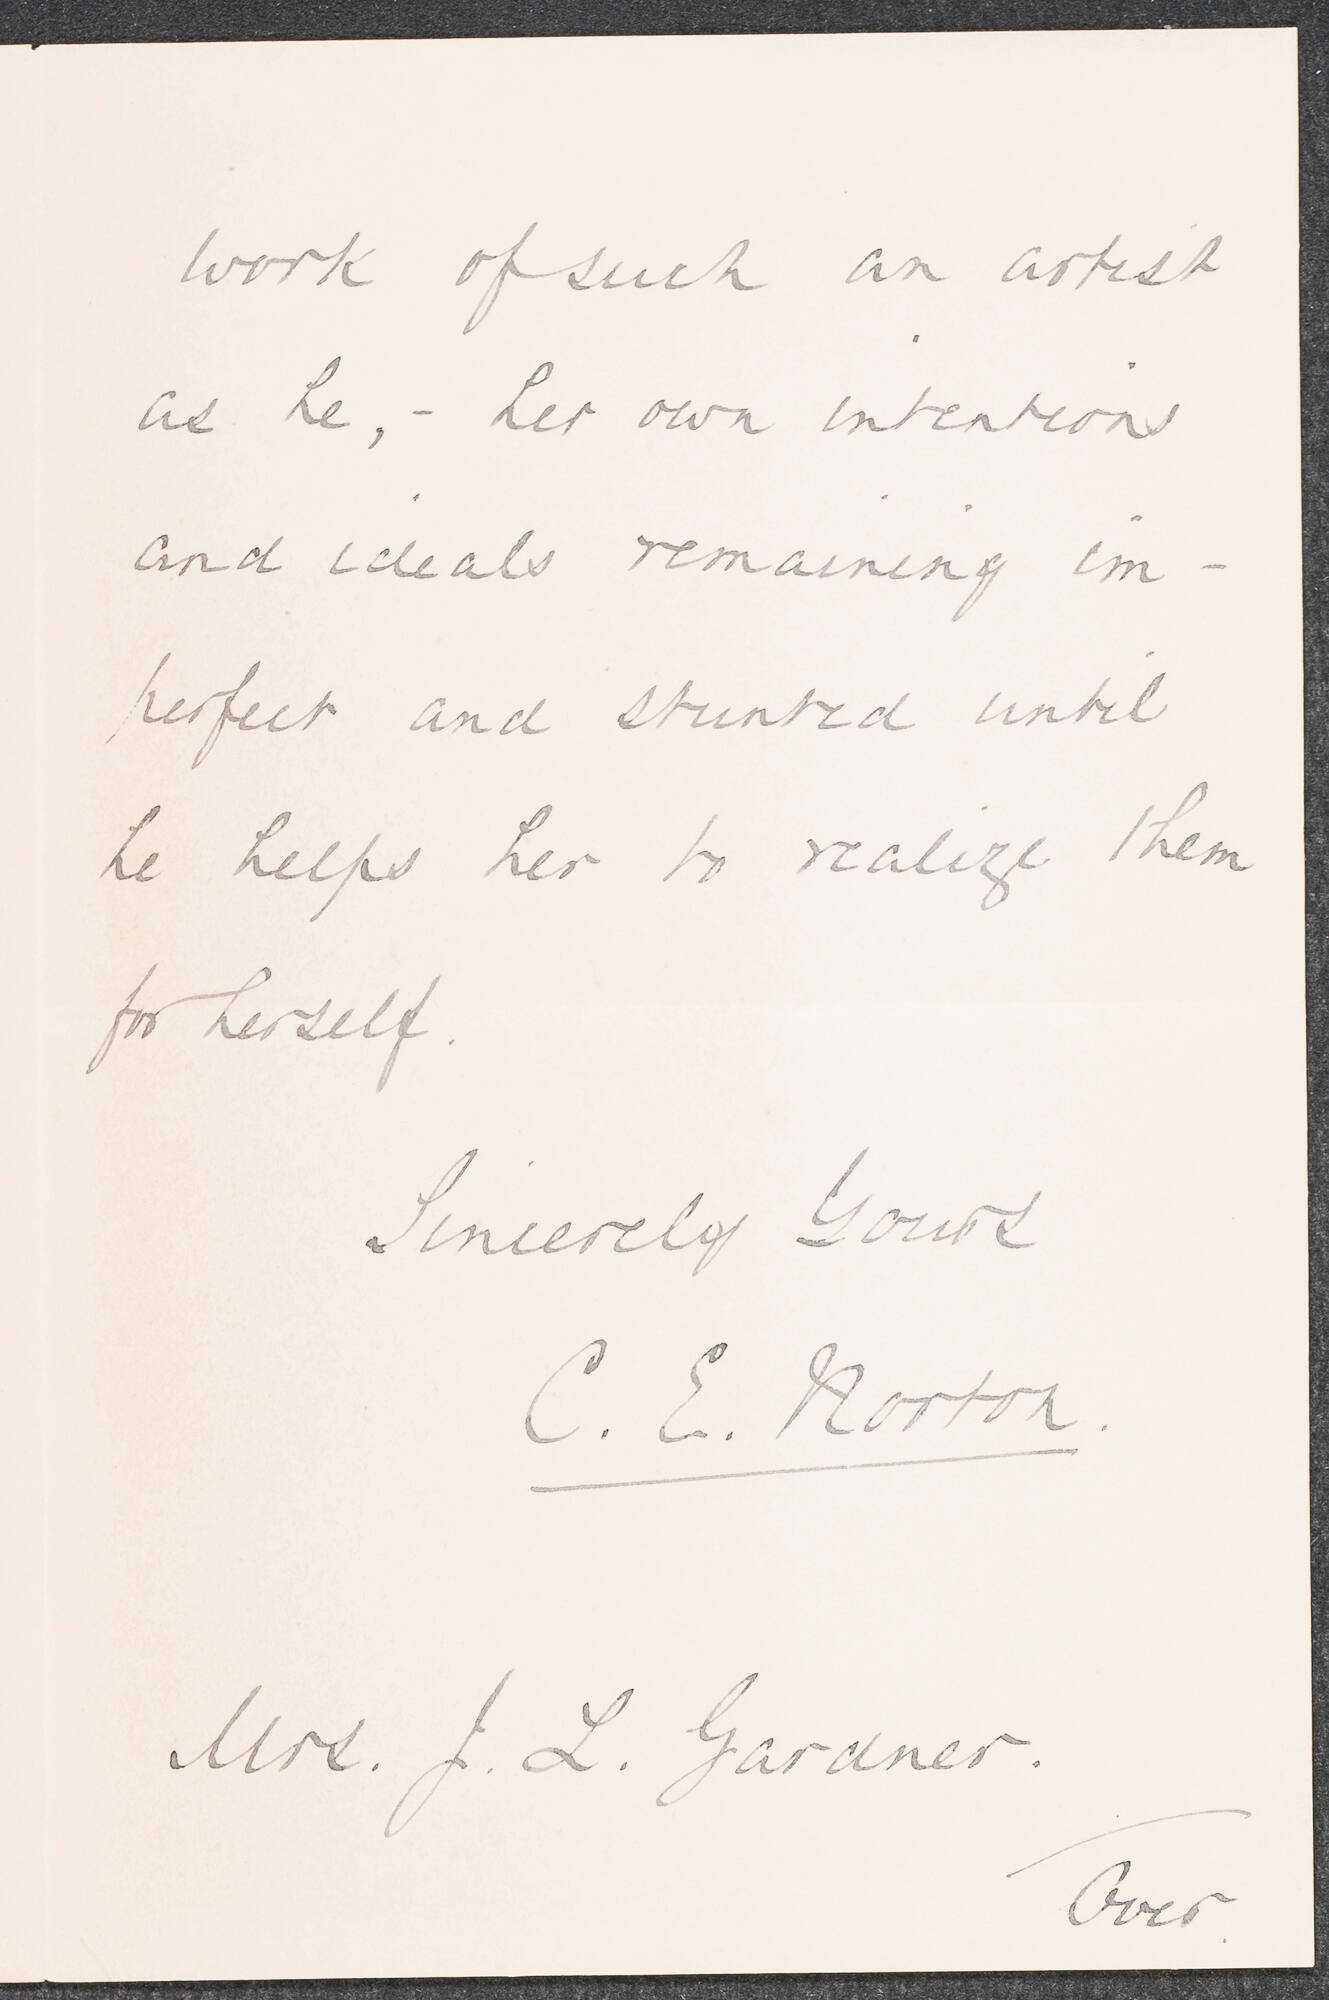 work of such an artist
as he, - her own intentions
and ideals remaining im-
perfect and stunted until
he helps her to realize them
for herself.
Sincerely Yours
C. E. Norton.
Mrs. J. L. Gardner.
Over.